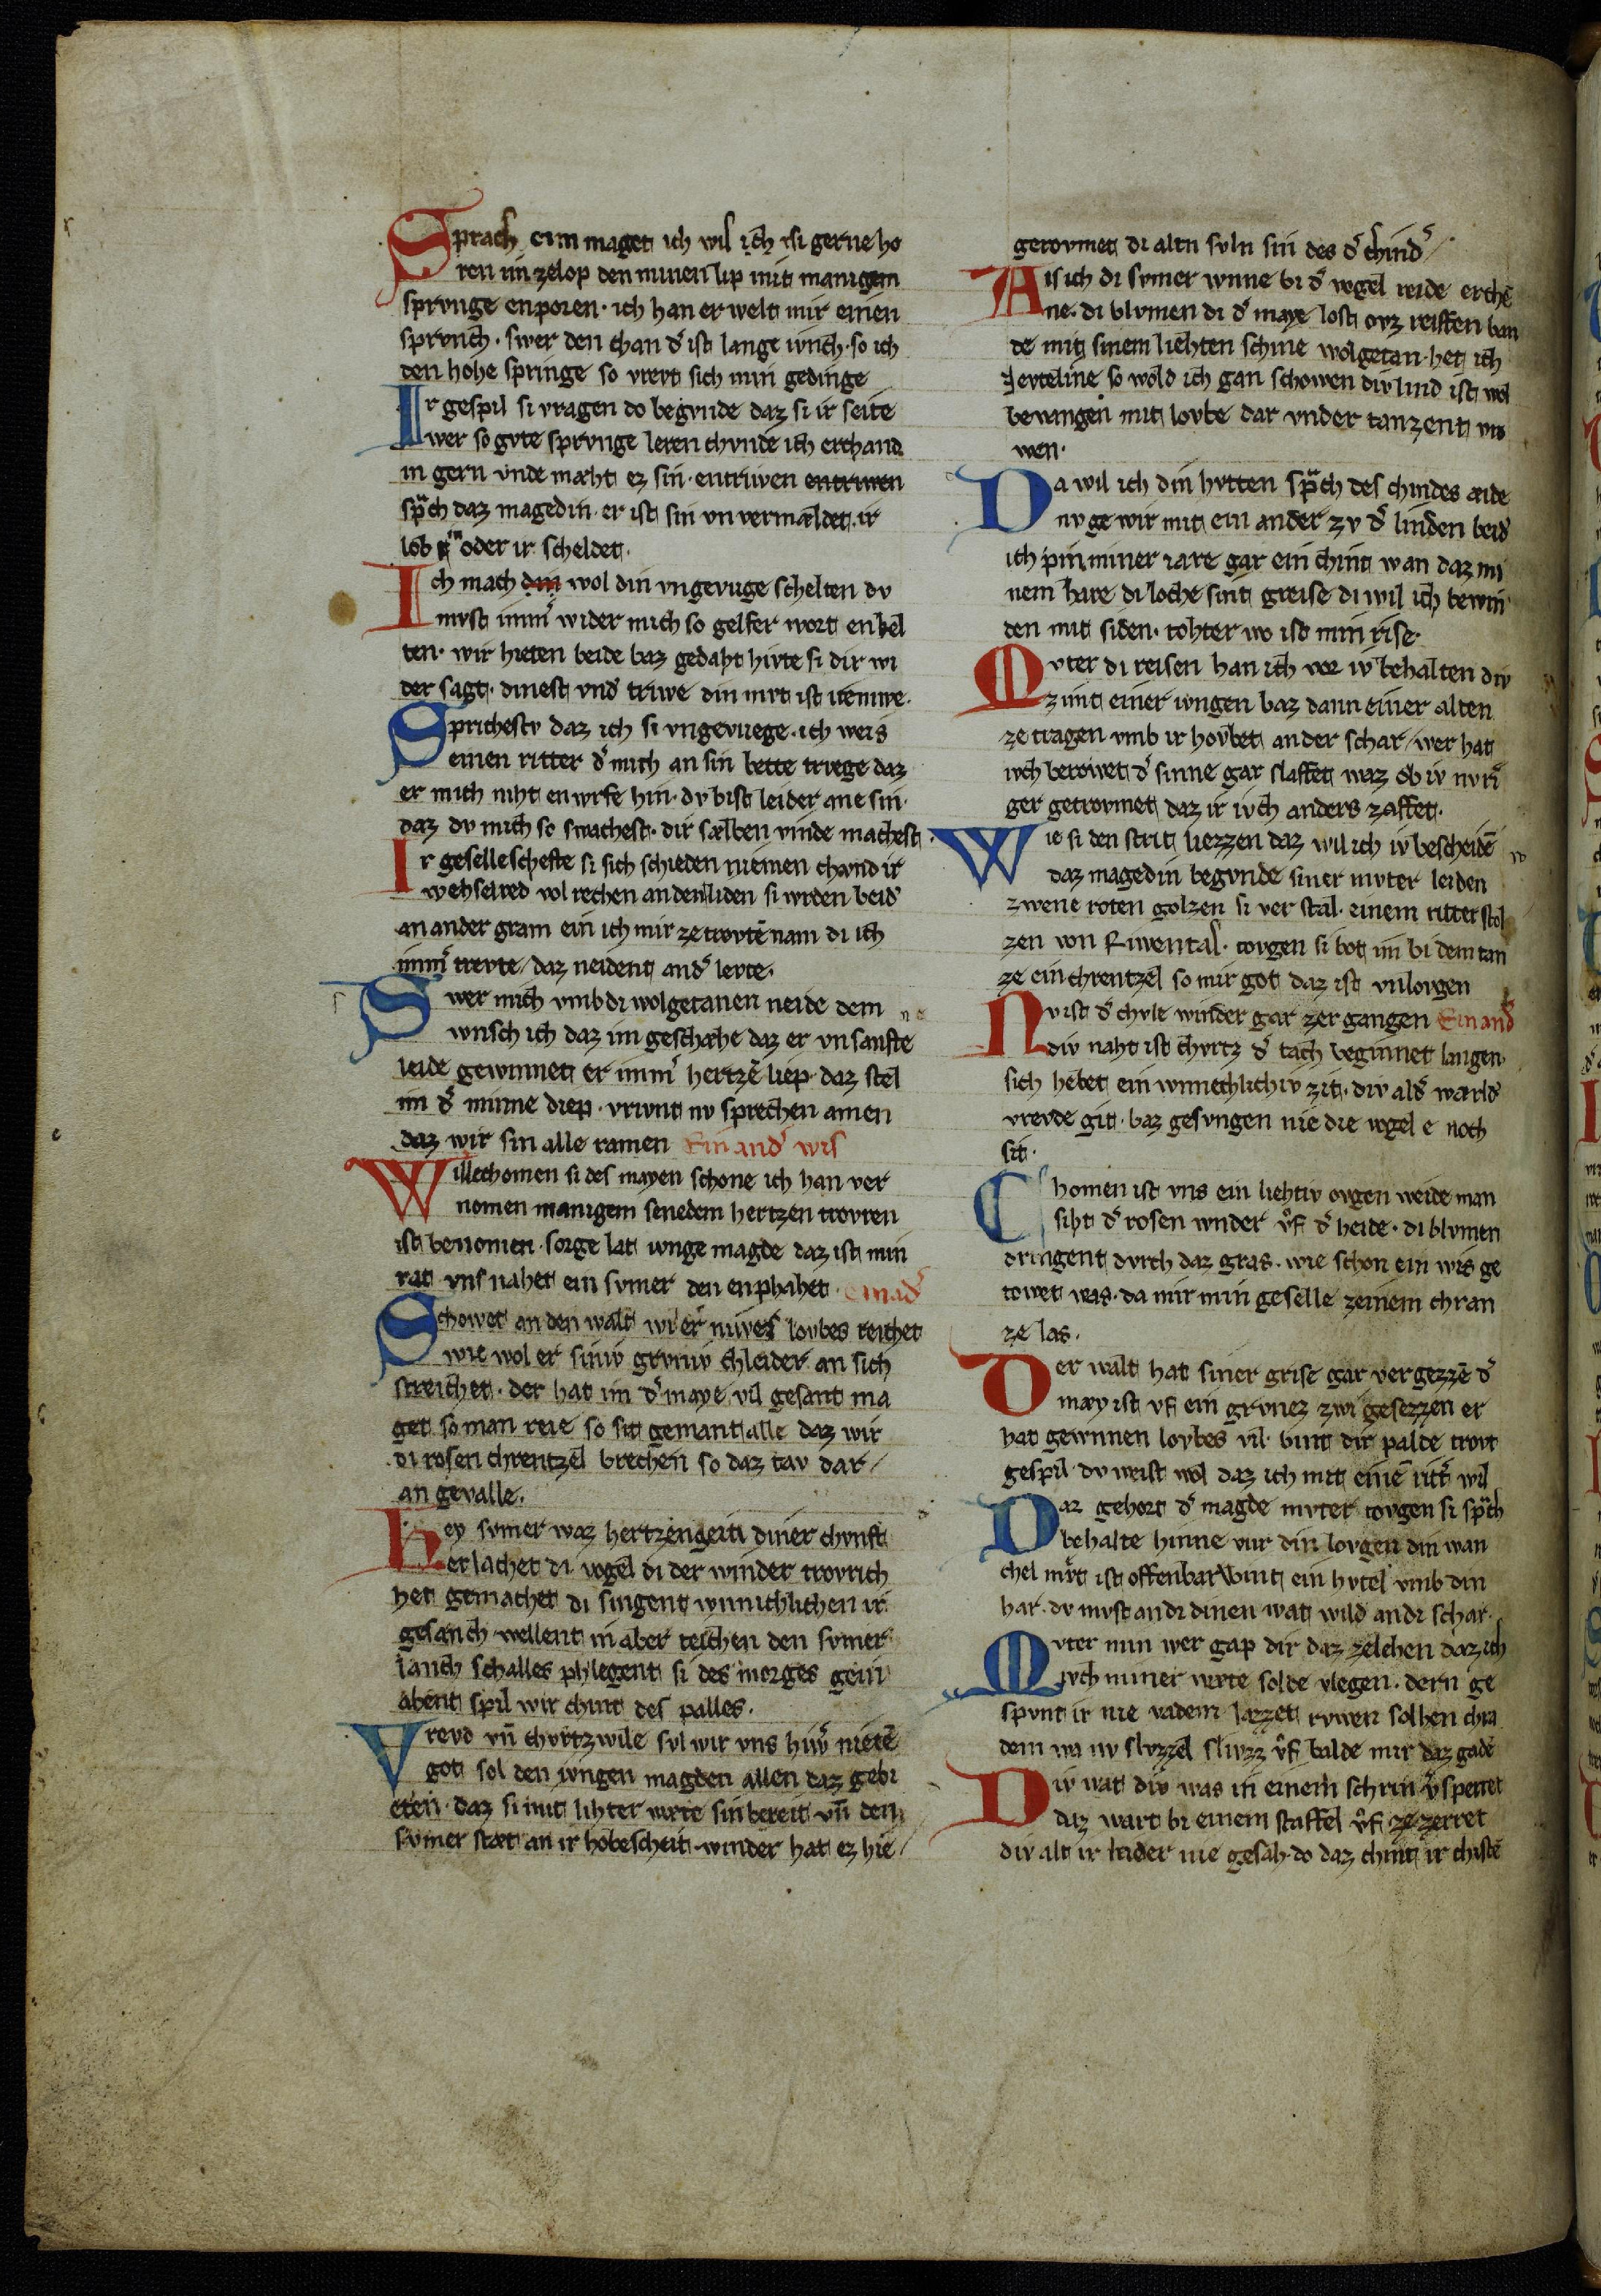 Sprach ein maget ich wil ich isi gerne ho
ren im zelop den minen lip mit manigem
sprvnge enporen · ich han er welt mir einen
sprvnch · swer den chan d͛ ist lange ivnch · so ich
den hohe springe so vrevt sich min gedinge
Ir gespil si vragen do begvnde daz si ir seite
wer so gvte sprvnge leren chvnde ich erchand
in gern vnde mæht ez sin · entriwen entriwen
spͣch daz magedin · er ist sin vn vermældet · ir
lob in oder ir scheldet ·
Ich mach din wol din vngevuge schelten dv
mvst imm͛ wider mich so gelfer wort enkel
ten · wir hieten beide baz gedaht hivte si dir wi
der sagt · dinest vnd͛ triwe din mvt ist niemwe ·
Sprichestv daz ich si vngevuege · ich weis
einen ritter d͛ mich an sin bette trvege daz
er mich niht en wrfe hin · dv bist leider ane sin ·
daz dv mich so swachest · dir sælben vinde machest
Ir geselleschefte si sich schieden niemen chvnd ir
wehselred vol rechen an den liden si wrden beid͛
an ander gram ein ich mir ze trovtē nam di ich
imm͛ trevte / daz neident and͛ levte ·
Swer mich vmb di wolgetanen neide dem
wnsch ich daz im geschæhe daz er vn sanfte
leide gewinnet er imm͛ hertzē liep · daz stel
im d͛ minne diep · vrivnt nv sprechen amen
daz wir sin alle ramen Ein and͛ wis
Willechomen si des mayen schone ich han ver
nomen manigem senedem hertzen trovren
ist benomen · sorge lat ivnge magde daz ist min
rat vns nahet ein svmer den enphahet · ein ad͛
Schowet an den walt wi er niwes lovbes reichet
wie wol er siniv grvniv chleider an sich
streichet · der hat im d͛ maye vil gesant ma
get so man reie so sit gemant alle daz wir
di rosen chrentzel brechen so daz tav dar /
an gevalle ·
Hey svmer waz hertzen gein diner chvnft
erlachet di vogel di der winder trovrich
het gemachet di singent wnnichlichen ir
gesanch · wellent in aber teichen den svmer
lanch schalles phlegent si des morges gein
abent spil wir chint des palles ·
Vrevd vn̄ chvrtzwile svl wir vns hiwͤ nietē
got sol den ivngen magden allen daz gebi
eten · daz si mit lihter wæte sin bereit vn̄ dem
svmer stæt an ir hobescheit · winder hat ez hie /
gerovmet di altn svln sin des d͛ chind͛ /
Als ich di svmer wnne bi d͛ vogel reide erche
ne · di blvmen di d͛ maye lost ovz reiffen ban
de mit sinem liehten schine wolgetan · het ich
Jevteline so wold ich gan schowen div lind ist wol
bevangen mit lovbe dar vnder tanzent vro
wen ·
Da wil ich din hvtten spͣch des chindes æide
nv ge wir mit ein ander zv d͛ linden beid͛
ich pin miner iare gar ein chint wan daz mi
nem hare di loche sint greise di wil ich bewin
den mit siden · tohter wo ist min rise ·
Mvter di reisen han ich vor iv behalten div
zimt einer ivngen baz dann einer alten
ze tragen vmb ir hovbet an der schar / wer hat
ivch berovbet d͛ sinne gar slaffet waz ob iv nvri
ger getrovmet daz ir ivch anders zaffet ·
Wie si den strit liezzen daz wil ich iv bescheidē
daz magedin begvnde siner mvter leiden
zwene roten golzen si ver stal · einem ritter stol
zen von Riwental · tovgen si bot im bi dem tan
ze ein chrentzel so mir got daz ist vnlovgen
Nv ist d͛ chvle winder gar zer gangen Ein and͛
div naht ist chvrtz d͛ tach beginnet langen ·
sich hebet ein wnnechlichiv zit · div ald͛ wærld͛
vrevde git · baz gesvngen nie die vogel e noch
sit ·
Chomen ist vns ein liehtiv ovgen weide man
siht d͛ rosen wnder vͦf d͛ heide · di blvmen
dringent dvrch daz gras · wie schon ein wis ge
towet was · da mir min geselle zeinem chran
ze las ·
Der walt hat siner grise gar vergezzē d͛
may ist vf ein grvnez zwi gesezzen er
hat gewnnen lovbes vil · bint dir palde trovt
gespil · dv weist wol daz ich mit einē ritt͛ wil
Daz gehort d͛ magde mvter tovgen si spͣch
behalte hinne vur din lovgen din wan
chel mvͦt ist offenbar wint ein hvtel vmb din
har · dv mvst an di dinen wat wild an di schar ·
Mvter min wer gap dir daz zelehen daz ich
ivch miner wæte solde vlegen · dern ge
spvnt ir nie vadem · lazzet rvwen solhen chra
dem wa nv slvzzel slivzz vͦf balde mir daz gadē
Div wat div was in einem schrin v͛sperret
daz wart bi einem staffel vͦf ze zerret
div alt ir leider nie gesah · do daz chint ir chistē